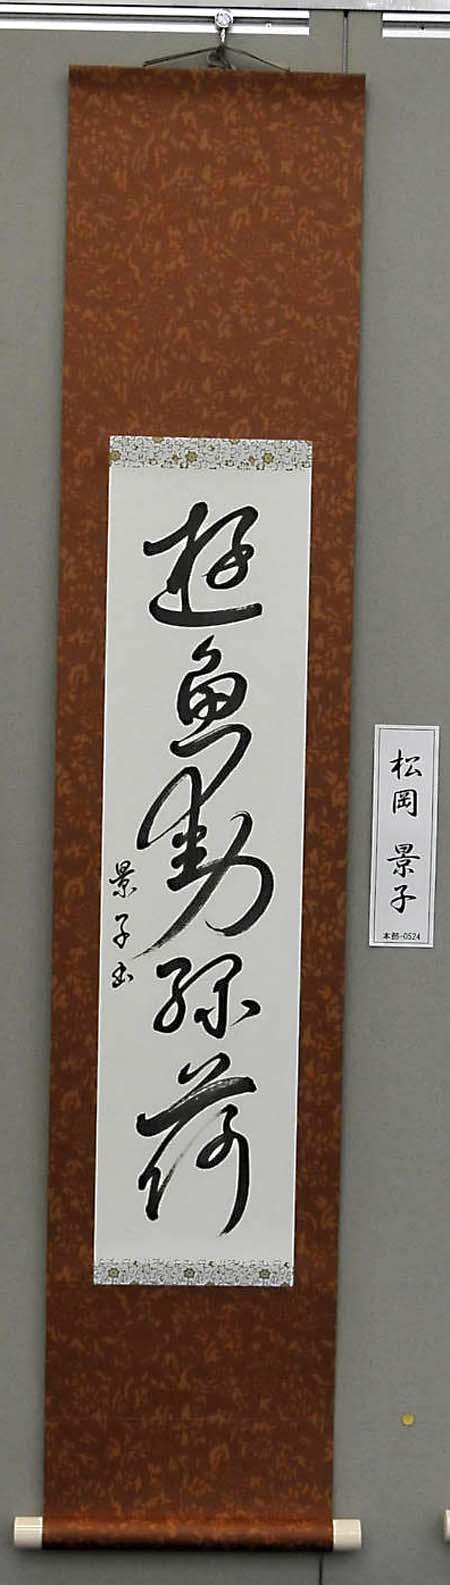 遊魚動緑荷
景子書
松岡 景子
本部-0524